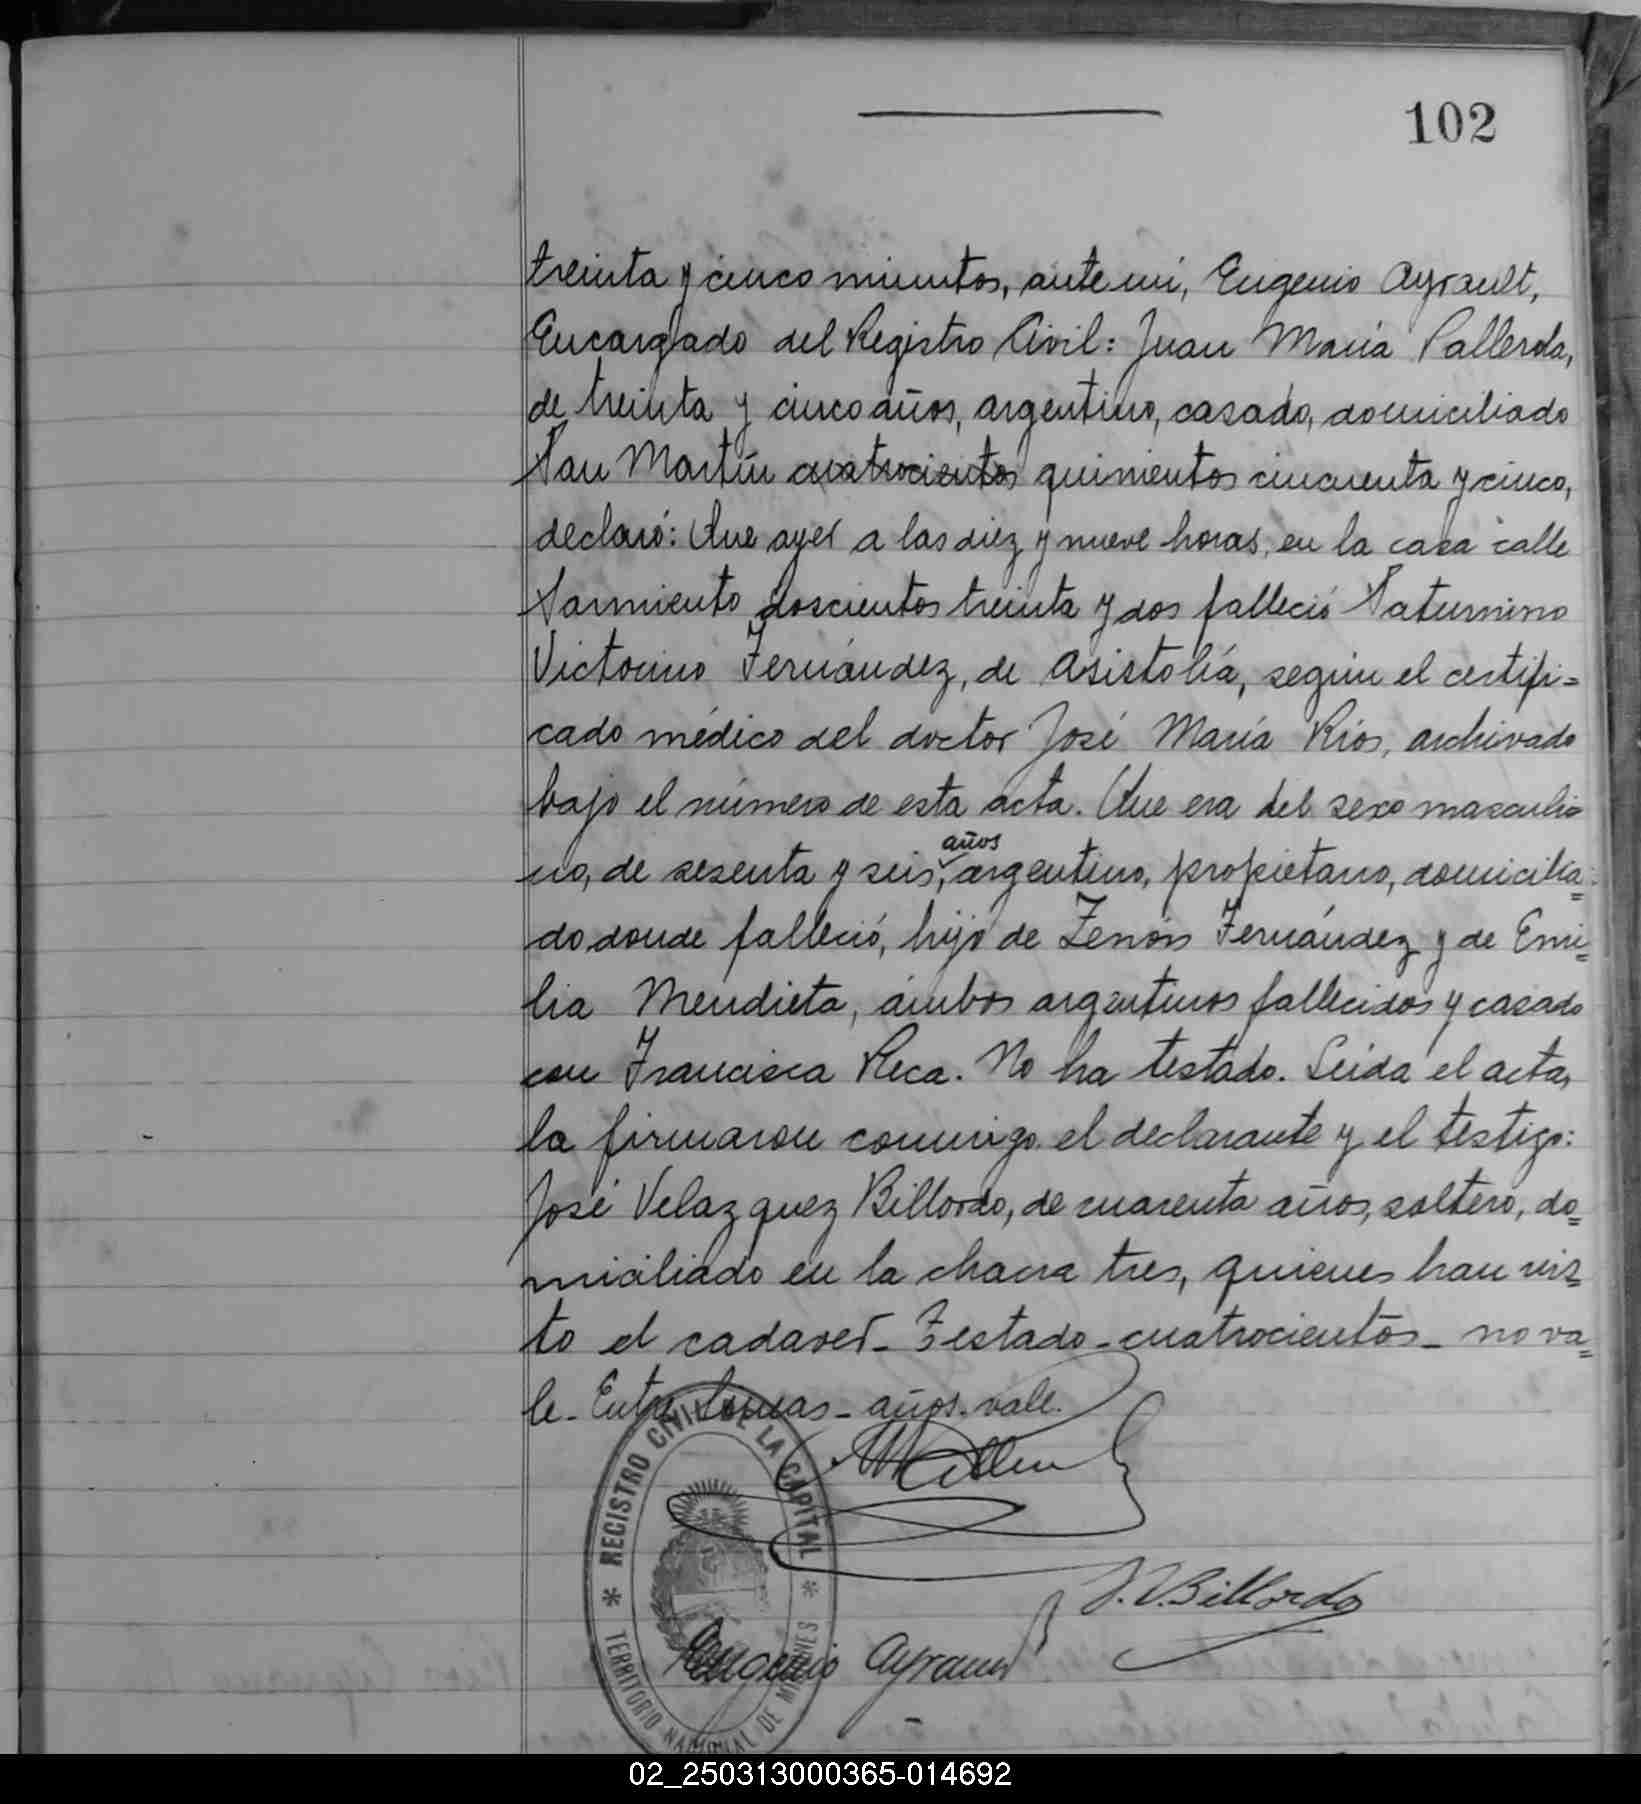 102
treinta y cinco minutos, ante mí, Eugenio Ayrault,
Encargado del Registro Civil: Juan María Pallerola,
de treinta y cinco años, argentino, casado, domiciliado
San Martín cuatrocientos quinientos cincuenta y cinco,
declaró: Que ayer a las diez y nueve horas, en la casa calle
Sarmiento doscientos treinta y dos falleció Saturnino
Victorino Fernández, de asistolía, según el certifi=
cado médico del doctor José María Ríos, archivado
bajo el número de esta acta. Que era del sexo masculi
no, de sesenta y seis, años argentino, propietario, domicilia=
do donde falleció, hijo de Zenón Fernández y de Emi=
lia Mendieta, ámbos argentinos fallecidos y casado
con Francisca Reca. No ha testado. Leída el acta,
la firmaron conmigo el declarante y el testigo:
José Velazquez Billordo, de cuarenta años, soltero, do=
miciliado en la chacra tres, quienes han vis=
to el cadaver_ Testado_cuatrocientos_ no va=
le_ Entre lineas_ años. vale.
J. V. Billordo
Eugenio Ayrault
REGISTRO CIVIL DE LA CAPITAL
* TERRITORIO NACIONAL DE MISIONES *
02_250313000365-014692